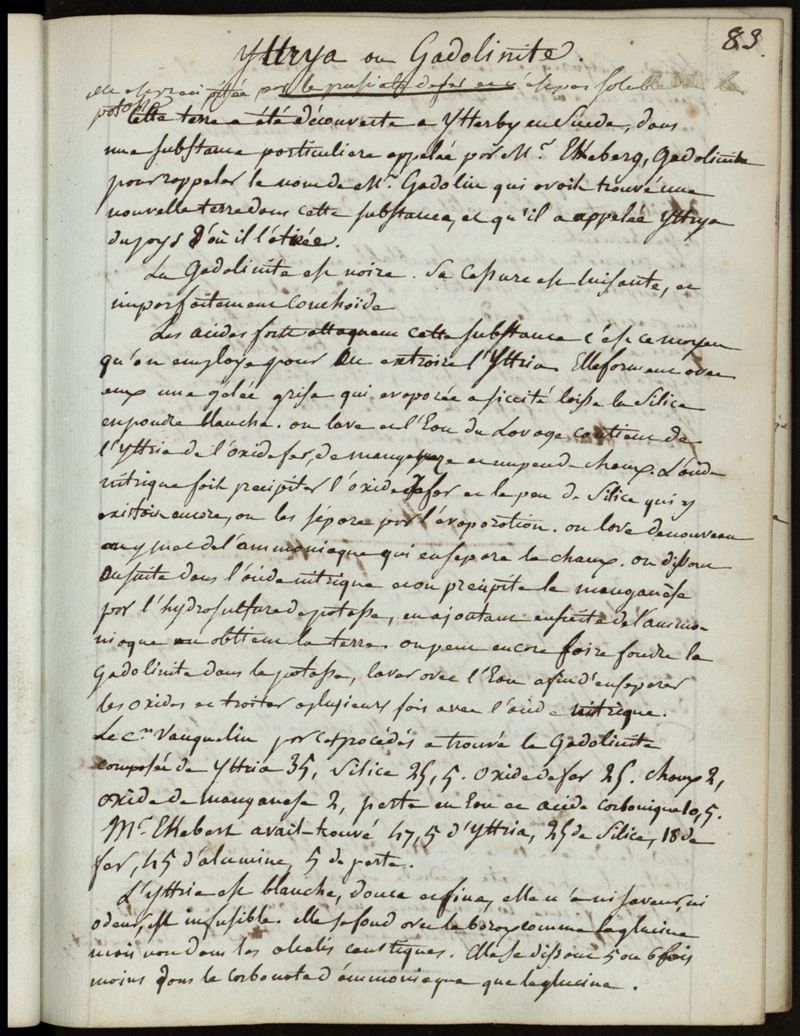 83.
Yttrya ou Gadolinite.
elle est precipitée par le prussiate de fer et n'est pas soluble dans la
potasse
Cette terre a été découverte a Ytterby en Suede, dans
une substance particuliere appelée par Mr. Ekeberg, Gadolinite
pour rappeler le nom de Mr. Gadolin qui avoit trouvé une
nouvelle terre dans cette substance, et qu'il a appelée Yttrya
du pays d'où il l'a tirée.
La Gadolinite est noire. Sa cassure est luisante, et
imparfaitement conchoïde
Les acides forts attaquent cette substance c'est ce moyen
qu'on employe pour en extraire l'Yttria. Elle forment avec
eux une gelée grise qui evaporée a siccité laisse la Silice
en poudre blanche. on lave et l'Eau du Lavage contient de
l'Yttria de l'oxide fer, de manganeze et un peu de chaux. L'acide
nitrique fait precipiter l'oxide de fer et le peu de Silice qui y
existoit encore, on les sépare par l'évaporation. on lave de nouveau
on y met de l'ammoniaque qui en separe la chaux. on dissout
ensuite dans l'acide nitrique et on precipite le manganèse
par l'hydrosulfure de potasse, en ajoutant ensuite de l'ammo-
niaque on obtient la terre. on peut encore faire fondre la
Gadolinite dans la potasse, laver avec l'Eau afin d'en separer
les oxides et traiter a plusieurs fois avec l'acide nitrique.
Le cen. Vauquelin par ces procédés a trouvé la Gadolinite
composée de Yttria 35, Silice 25,5. oxide de fer 25. chaux 2,
oxide de manganese 2, perte en Eau et acide carbonique 10,5.
Mr. Ekebert avait trouvé 47,5 d'Yttria, 25 de Silice, 18 de
fer, 4,5 d'alumine, 5 de perte.
L'yttria est blanche, douce et fine, elle n'a ni saveur, ni
odeur, est infusible. elle se fond avec le borax comme la glucine
mais non dans les alcalis caustiques. Elle se dissout 5 ou 6 fois
moins dans le carbonate d'ammoniaque que la glucine.